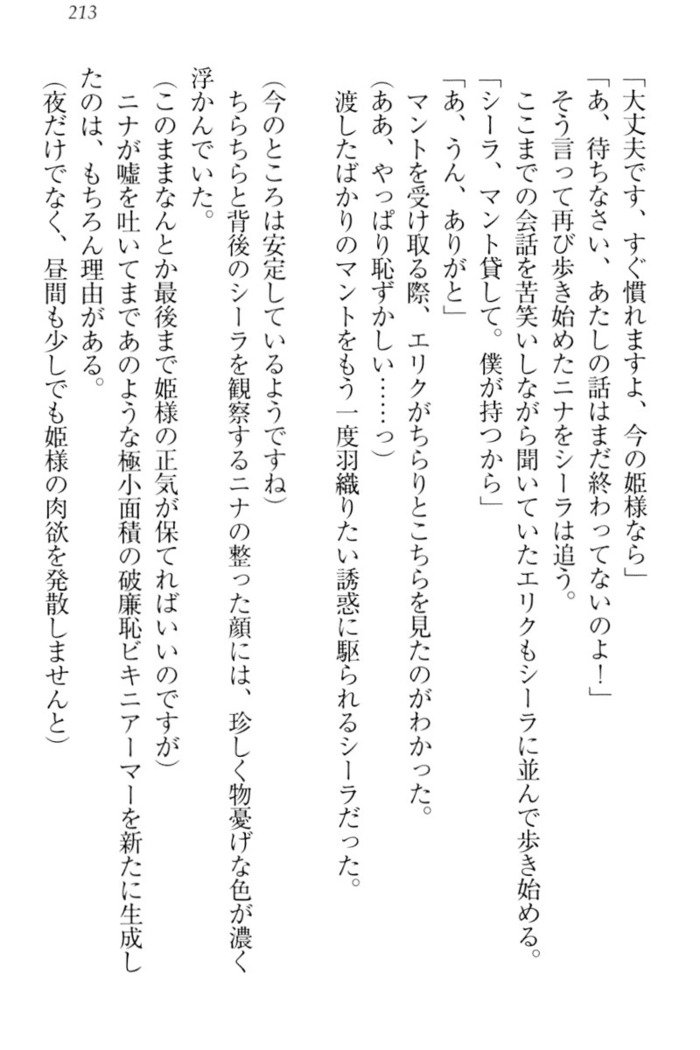 213
「大丈夫です、すぐ慣れますよ、今の姫様なら」
「あ、待ちなさい、あたしの話はまだ終わってないのよ！」
そう言って再び歩き始めたニナをシーラは追う。
ここまでの会話を苦笑いしながら聞いていたエリクもシーラに並んで歩き始める。
「シーラ、マント貸して。僕が持つから」
「あ、うん、ありがと」
マントを受け取る際、エリクがちらりとこちらを見たのがわかった。
（ああ、やっぱり恥ずかしい……っ）
渡したばかりのマントをもう一度羽織りたい誘惑に駆られるシーラだった。
（今のところは安定しているようですね）
ちらちらと背後のシーラを観察するニナの整った顔には、珍しく物憂げな色が濃く
浮かんでいた。
（このままなんとか最後まで姫様の正気が保てればいいのですが）
ニナが嘘を吐いてまであのような極小面積の破廉恥ビキニアーマーを新たに生成し
たのは、もちろん理由がある。
（夜だけでなく、昼間も少しでも姫様の肉欲を発散しませんと）